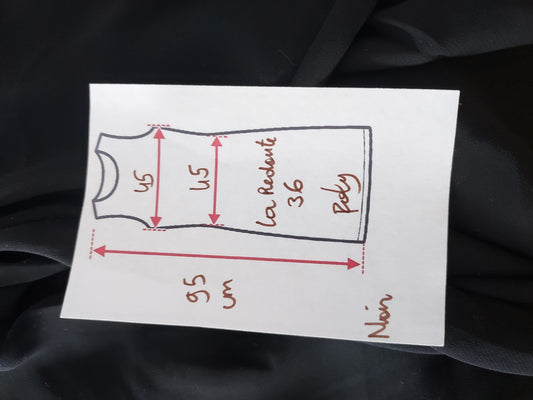 45
45
La Redoute
36
Poly
95
cm
Noir